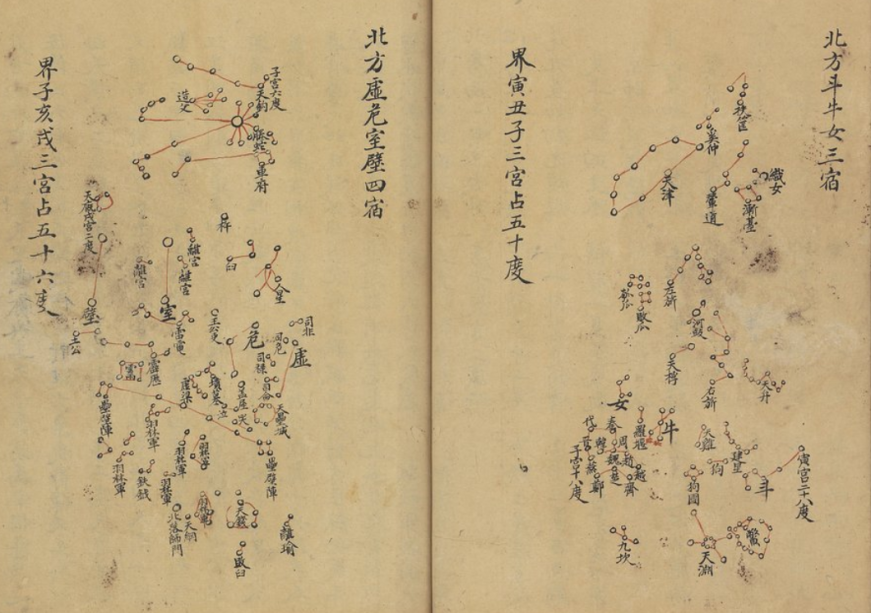 北方斗牛女三宿
扶筐
奚仲
織女
漸臺
輦道
天津
左旂
瓠瓜
敗瓜
河鼓
天桴
右旂
天弁
女
牛
羅堰
代
秦
晉
魏
周
趙
越
楚
齊
鄭
子宮十八度
天雞
狗
建星
狗國
斗
寅宮二十八度
九坎
鱉
天淵
界寅丑子三宮占五十度
北方虛危室壁四宿
子宮六度
天鈎
造父
螣蛇
車府
杵
臼
人星
離宮
離宮
離宮
天廄戌宮二度
壁
土公
室
雷電
危
虛
司祿
司危
墳墓
虛梁
哭
泣
天壘城
霹靂
壘壁陣
羽林軍
羽林軍
羽林軍
羽林軍
羽林軍
鈇鉞
壘壁陣
北落師門
天網
敗臼
離瑜
界子亥戌三宮占五十六度